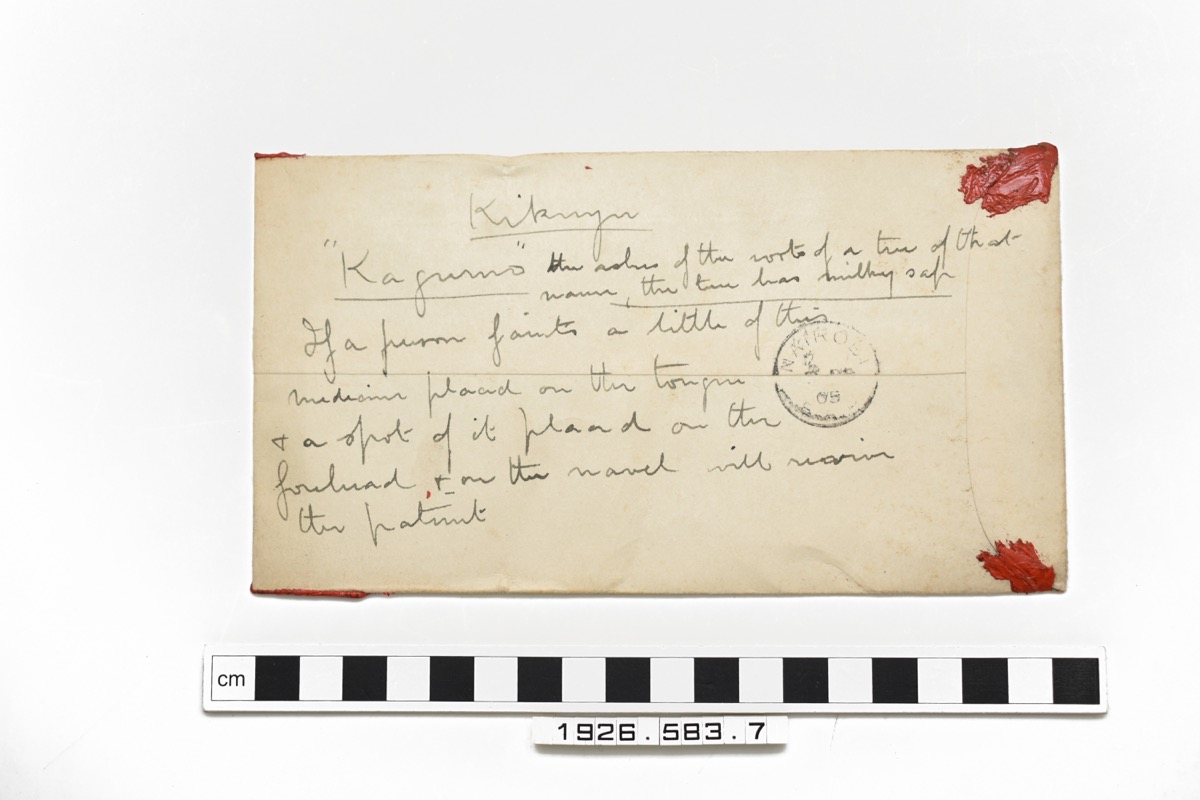 Kikuyu
"Kagumo" the ashes of the roots of a tree of that
name, the tree has milky sap
If a person faints a little of this
medicine placed on the tongue
& a spot of it placed on the
forehead & on the navel will revive
the patient
NAIROBI
09
cm
1926.583.7